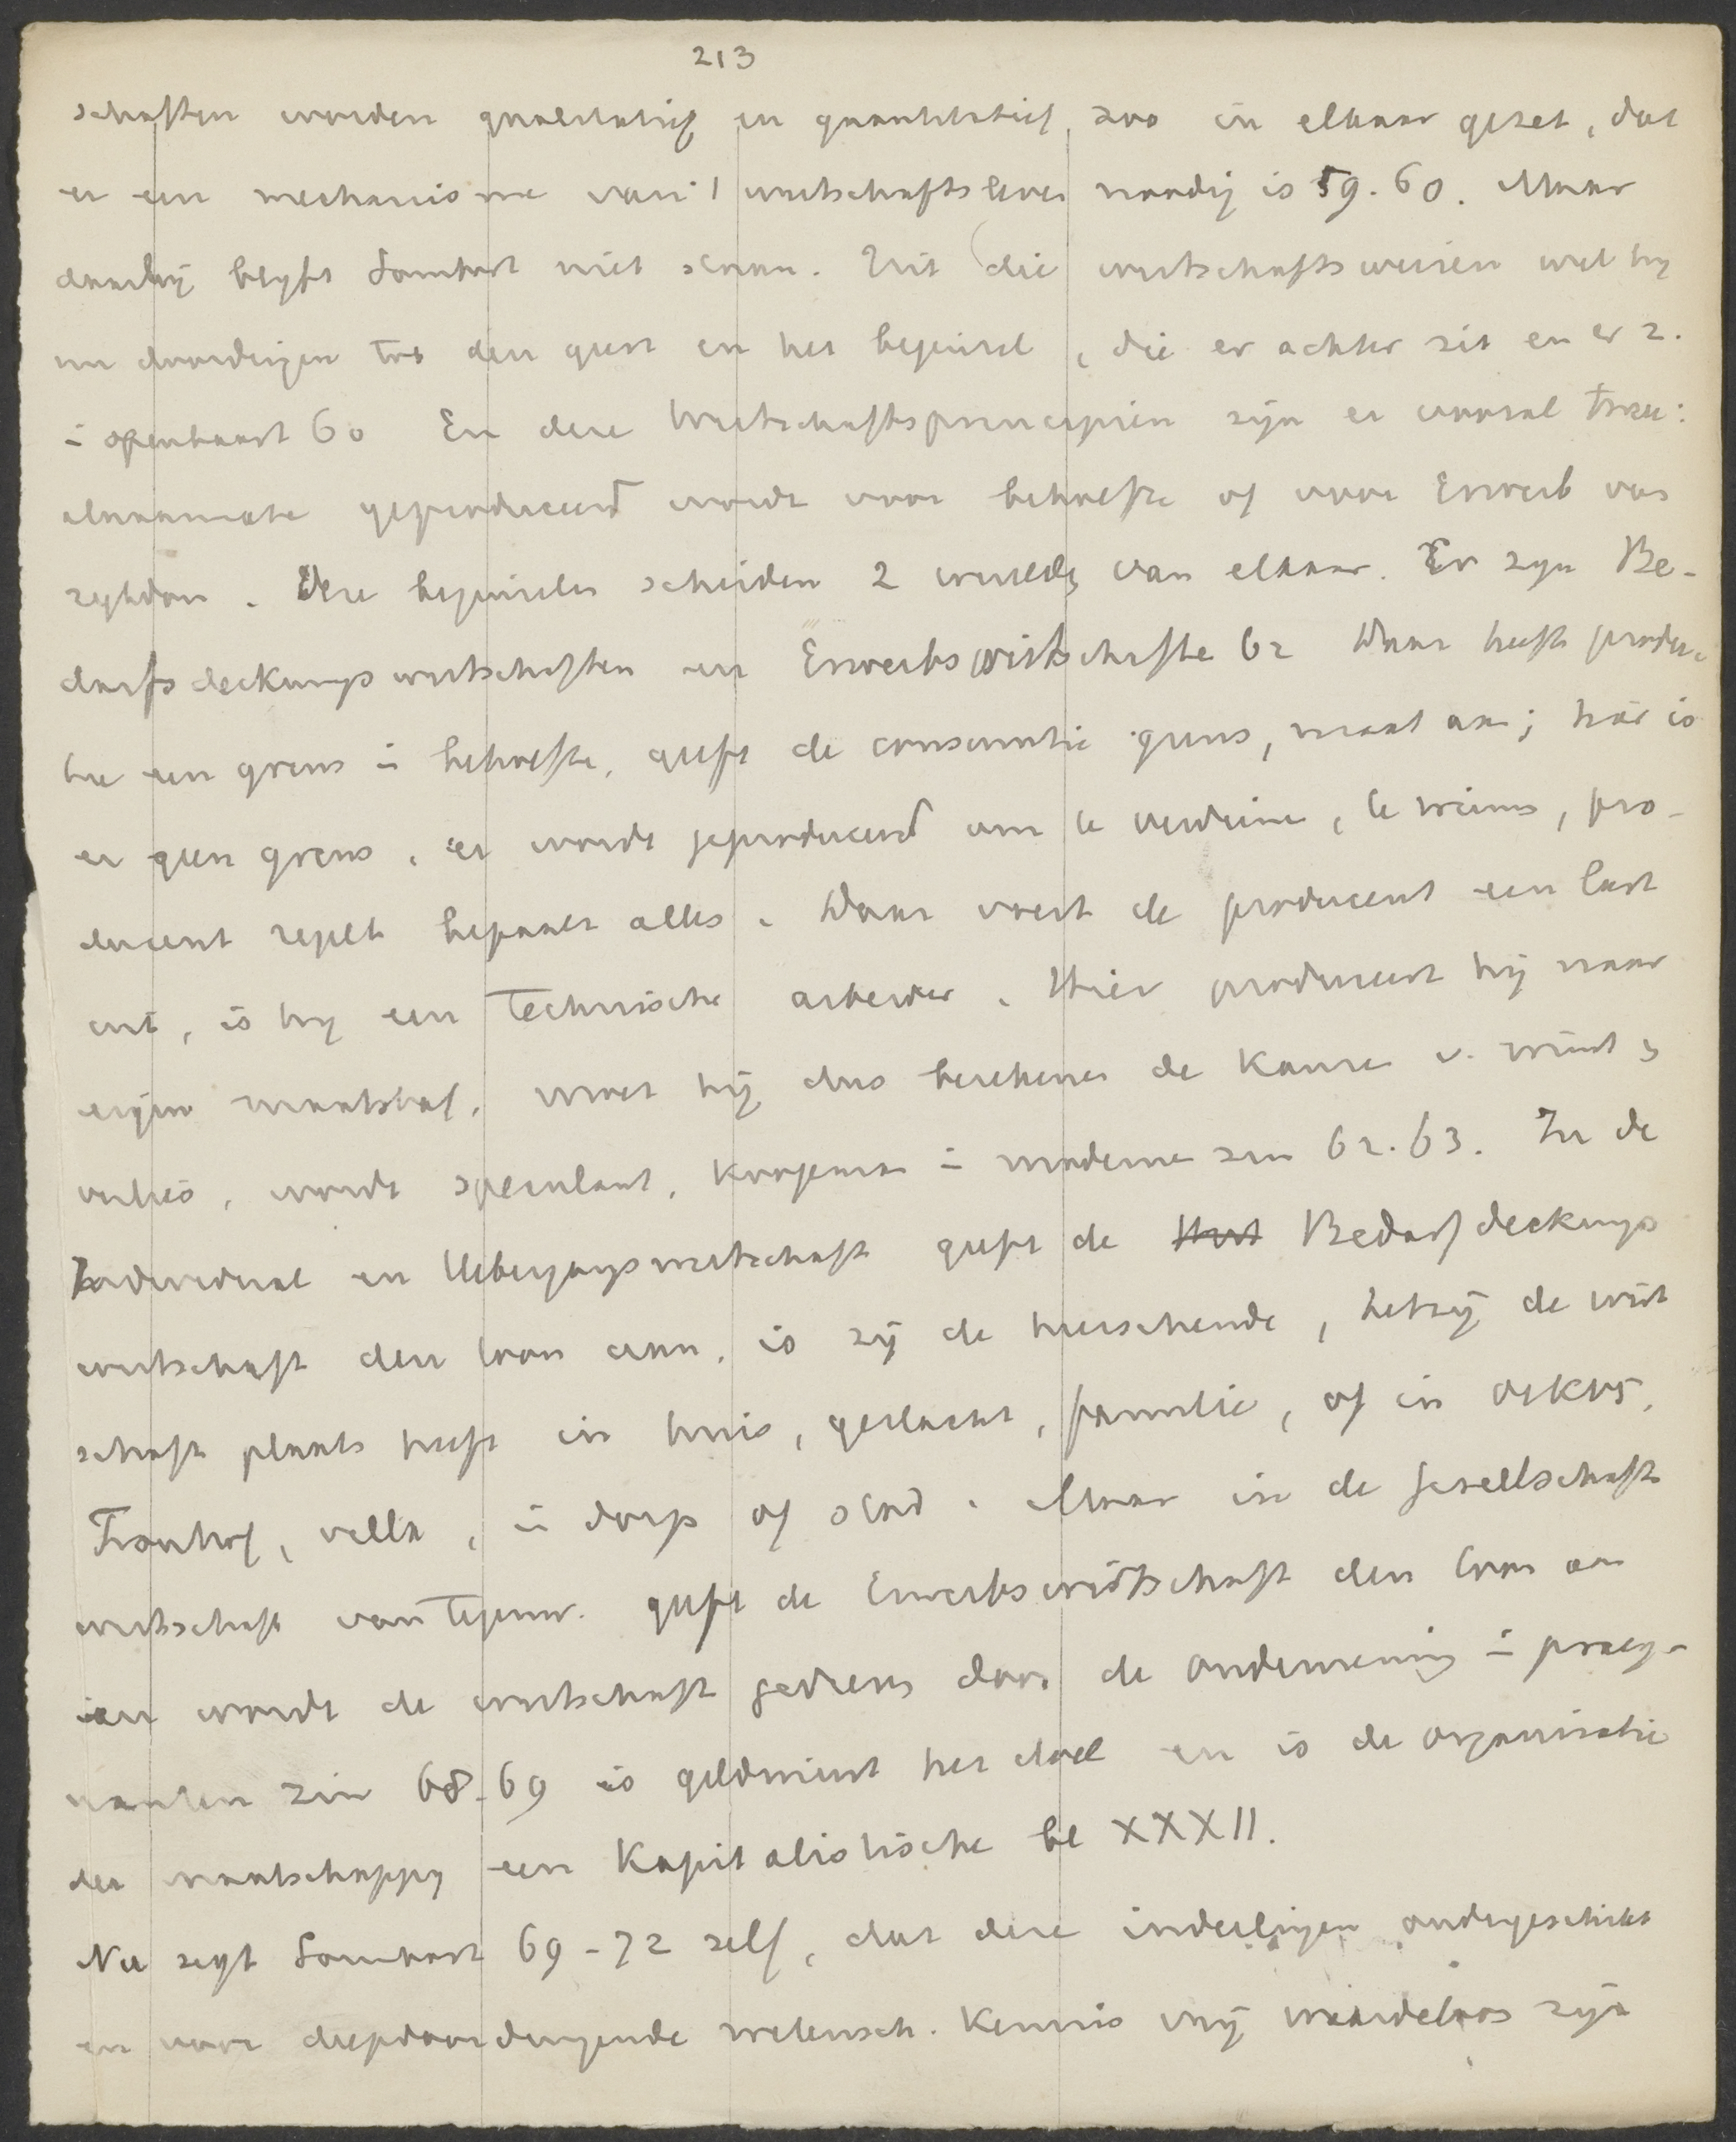 213
schaften worden qualitatief en quantitatief zoo in elkaar gezet, dat
er een mechanisme van 't wirtschaftsleven noodig is 59.60. Maar
daarbij blyft Sombart niet staan. Uit die wirtschaftsweisen wil hy
nu doordringen tot den geest en het beginsel, die er achter zit en er z.
i openbaart 60 En deze Wirtschaftsprincipien zijn er vooral twee:
alnaarmate geproduceerd wordt voor behoefte of voor Erwerb van
rykdom. Deze beginselen scheiden 2 werelden van elkaar. Er zyn Be-
darfsdeckungswirtschaften en Erwerbswirtschafte 62 Daar heeft produc
tie een grens i behoefte, geeft de consumtie grens, maat aan; hier is
er geen grens, er wordt geproduceerd om te verdienen, te winnen, pro-
ducent regelt bepaalt alles. Daar voert de producent een last
uit, is hy een technische arbeider. Hier produceert hij naar
eigen maatstaf, moet hij dus berekenen de kansen v. winst &
verlies, wordt speculant, koopman i moderne zin 62.63. In de
Individual en Uebergangswirtschaft geeft de Bedarfdeckungs
wirtschaft den toon aan, is zij de heerschende, hetzij de wirt
schaft plaats heeft in huis, geslacht, familie, of in οικος,
Fronhof, villa, i dorp of stad. Maar in de Gesellschafts
wirtschaft van tegenw. geeft de Erwerbswirtschaft den toon aan
en wordt de wirtschaft gedreven door de onderneming i praeg-
nanten zin 68-69 is geldwinst het doel en is de organisatie
der maatschappy een kapitalistische bl XXXII.
Nu zegt Sombart 69-72 zelf, dat deze indeelingen ondergeschikt
en voor diepdoordringende wetensch. kennis vrij waardeloos zijn